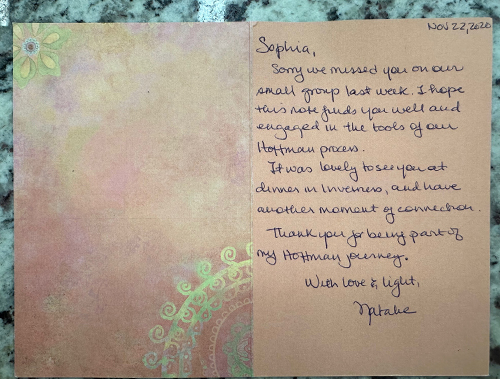 Nov 22, 2020
Sophia,
Sorry we missed you on our
small group last week. I hope
this note finds you well and
engaged in the tools of our
Hoffman process.
It was lovely to see you at
dinner in Inverness, and have
another moment of connection.
Thank you for being part of
my Hoffman journey.
With love & light,
Natalie